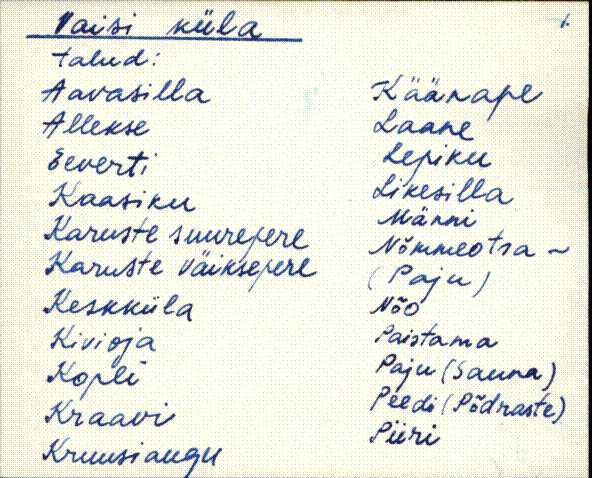 Vaisi küla
1.
talud:
Aavasilla
Allekse
Eeverti
Kaasiku
Karuste suurepere
Karuste väiksepere
Keskküla
Kivioja
Kopli
Kraavi
Kruusiaugu
Käänape
Laane
Lepiku
Likesilla
Männi
Nõmmeotsa ~
(Paju)
Nõo
Paistama
Paju (Sauna)
Peedi (Põdraste)
Piiri